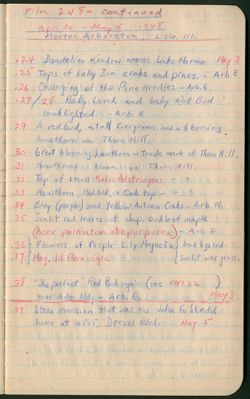 Film 248 - continued
Apr. 30 - May 5 1948
Morton Arboretum, Lisle, Ill.
24 Dandelion meadow across Lake Marmo May 3
25 Tops of baby Zumi crabs and pines. - Arb. E
26 Changing of the Pine Needles - Arb. E.
27/28 Baby Larch and baby Red Bud
sunlighted. - Arb. E
29 A red bud, a tall Evergreen and a blooming
Hawthorn on Thorn Hill.
30 Great blooming hawthorn - trade mark of Thorn Hill.
31 Hawthorne bloom on Thorn Hill.
32 Top of small
33 Hawthorn, Red bud, Oak top - " "
34 Eley (purple) and Yellow Autumn Crabs. Arb. W.
35 Sunlit red leaves of shrub, budleaf maple
(Acer palmatum atropurpurea) - Arb. E
36 Flowers of Purple Lily Magnolia
37 Mag. liliflora nigra sunlit over grass.
38 "The perfect" Red Bud, again (see 247.22)
near Adm. Bldg. - Arb. E. May 3
39 Stone mansion that was the John G. Shedd
home at 4515 Drexel Blvd. May 5